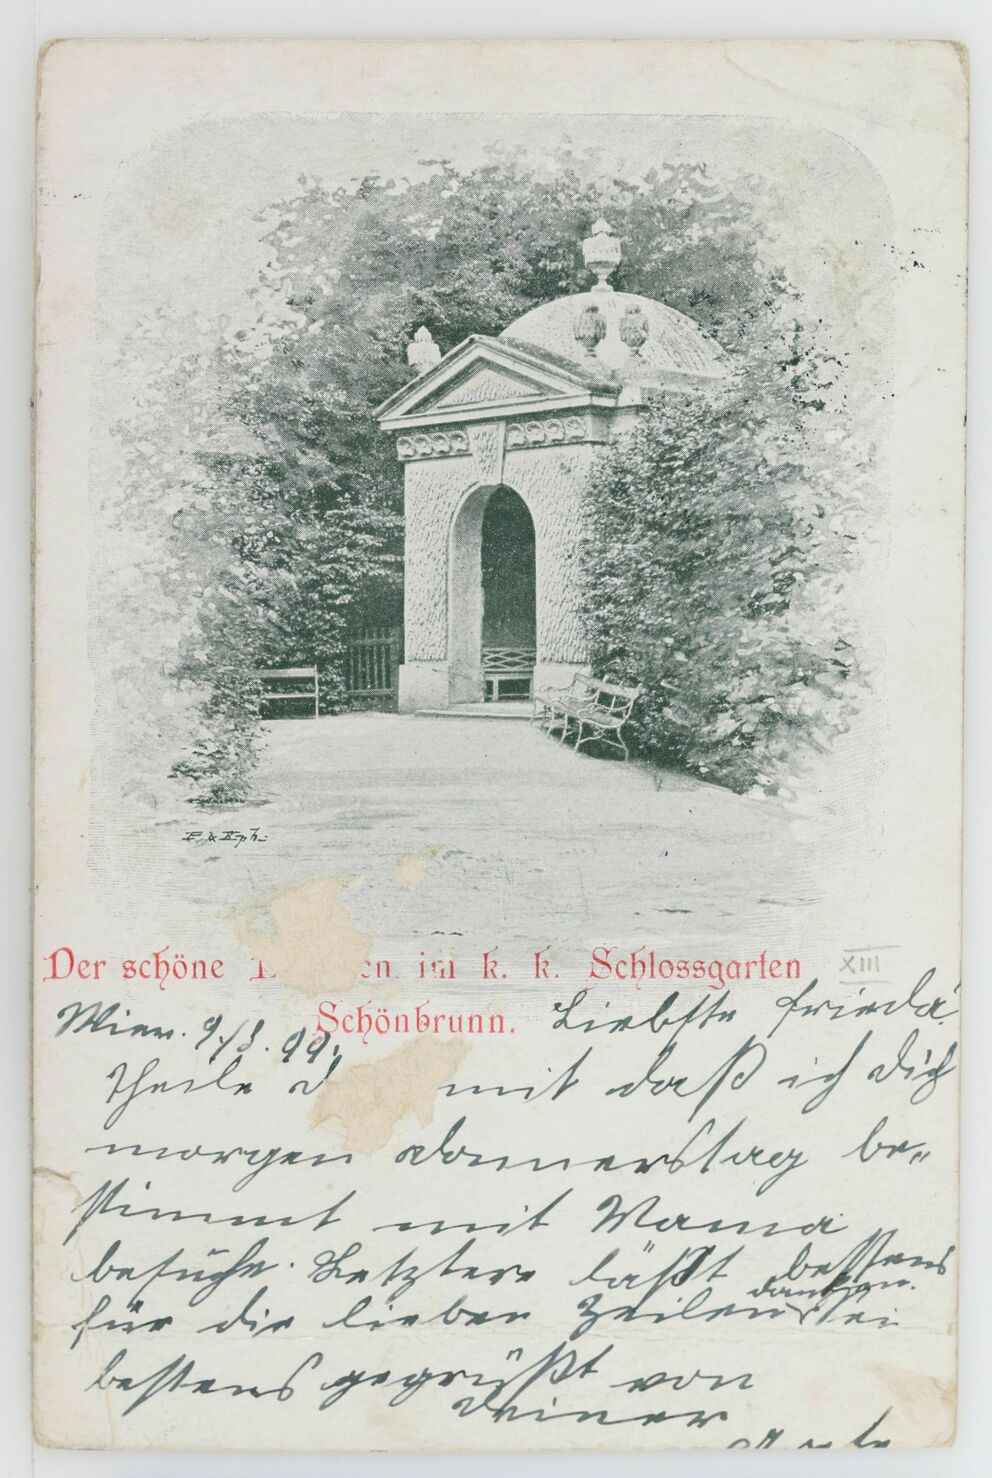 P & Kph.
Der schöne en im k. k. Schlossgarten
Schönbrunn.
XIII
Wien. 9./8. 99. Liebste Frieda!
Theile d mit daß ich dich
morgen Donnerstag be-
stimmt mit Mama
besuche. Letztere läßt bestens
danken.
für die lieben Zeilen Sei
bestens gegrüßt von
Deiner